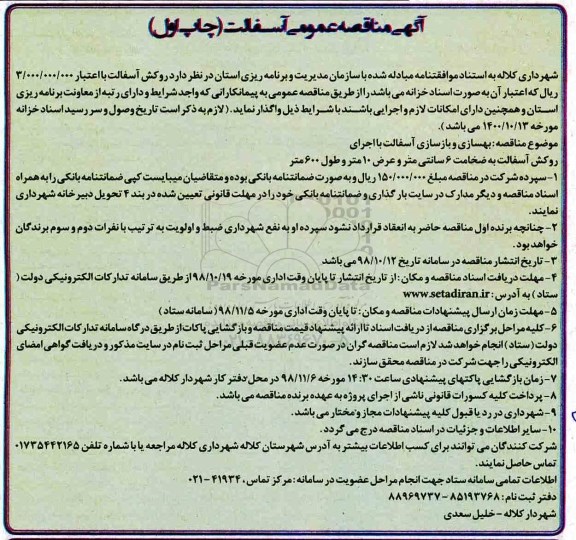 آگهی مناقصه عمومی آسفالت (چاپ اول)
شهرداری کلاله به استناد موافقتنامه مبادله شده با سازمان مدیریت و برنامه ریزی استان در نظر دارد روکش آسفالت با اعتبار ۳/۰۰۰/۰۰۰/۰۰۰
ریال که اعتبار آن به صورت اسناد خزانه می باشد را از طریق مناقصه عمومی به پیمانکارانی که واجد شرایط و دارای رتبه از معاونت برنامه ریزی
استان و همچنین دارای امکانات لازم و اجرایی باشند با شرایط ذیل واگذار نماید. (لازم به ذکر است تاریخ وصول و سر رسید اسناد خزانه
مورخه ۱۴۰۰/۱۰/۱۳ می باشد).
موضوع مناقصه : بهسازی و بازسازی آسفالت با اجرای
روکش آسفالت به ضخامت ۶ سانتی متر و عرض ۱۰ متر و طول ۶۰۰ متر
۱- سپرده شرکت در مناقصه مبلغ ۱۵۰/۰۰۰/۰۰۰ ریال و به صورت ضمانتنامه بانکی بوده و متقاضیان میبایست کپی ضمانتنامه بانکی را به همراه
اسناد مناقصه و دیگر مدارک در سایت بار گذاری و ضمانتنامه بانکی خود را در مهلت قانونی تعیین شده در بند ۴ تحویل دبیرخانه شهرداری
نمایند.
۲- چنانچه برنده اول مناقصه حاضر به انعقاد قرارداد نشود سپرده او به نفع شهرداری ضبط و اولویت به ترتیب با نفرات دوم و سوم برندگان
خواهد بود.
۳- تاریخ انتشار مناقصه در سامانه تاریخ ۹۸/۱۰/۱۲ می باشد
۴- مهلت دریافت اسناد مناقصه و مکان : از تاریخ انتشار تا پایان وقت اداری مورخه ۹۸/۱۰/۱۹ از طریق سامانه تدارکات الکترونیکی دولت (
ستاد ) به آدرس : www.setadiran.ir
۵- مهلت زمان ارسال پیشنهادات مناقصه و مکان : تا پایان وقت اداری مورخه ۹۸/۱۱/۵ ( سامانه ستاد )
۶- کلیه مراحل برگزاری مناقصه از دریافت اسناد تا ارائه پیشنهاد قیمت مناقصه و بازگشایی پاکات از طریق درگاه سامانه تدارکات الکترونیکی
دولت ( ستاد ) انجام خواهد شد لازم است مناقصه گران در صورت عدم عضویت قبلی مراحل ثبت نام در سایت مذکور و دریافت گواهی امضای
الکترونیکی را جهت شرکت در مناقصه محقق سازند.
۷- زمان بازگشایی پاکتهای پیشنهادی ساعت ۱۴:۳۰ مورخه ۹۸/۱۱/۶ در محل دفتر کار شهردار کلاله می باشد.
۸- پرداخت کلیه کسورات قانونی ناشی از اجرای پروژه به عهده برنده مناقصه می باشد.
۹- شهرداری در رد یا قبول کلیه پیشنهادات مجاز و مختار می باشد.
۱۰- سایر اطلاعات و جزئیات در اسناد مناقصه درج می گردد.
شرکت کنندگان می توانند برای کسب اطلاعات بیشتر به آدرس شهرستان کلاله شهرداری کلاله مراجعه یا با شماره تلفن ۰۱۷۳۵۴۴۲۱۶۵
تماس حاصل نمایند.
اطلاعات تمامی سامانه ستاد جهت انجام مراحل عضویت در سامانه : مرکز تماس ، ۴۱۹۳۴-۰۲۱
دفتر ثبت نام : ۸۵۱۹۳۷۶۸ - ۸۸۹۶۹۷۳۷
شهردار کلاله - خلیل سعدی
ParsNamadData